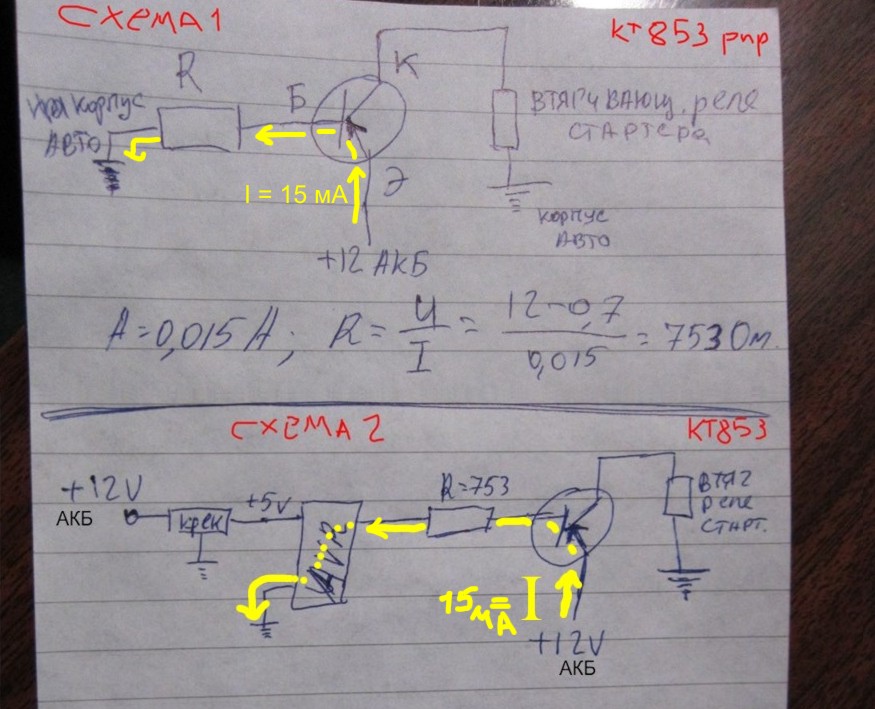 СХЕМА 1
КТ 853 pnp
R
К
Б
корпус
АВТО
ВТЯГИВАЮЩ. реле
СТАРТЕРА
I = 15 мА
Э
корпус
АВТО
+12 АКБ
A = 0,015 A; R = U/I = 12-0,7/0,015 = 753 Ом.
СХЕМА 2
КТ853
+12V
АКБ
крен
+5V
AVR
R=753
ВТЯГ
реле
СТАРТ.
15 мА = I
+12V
АКБ